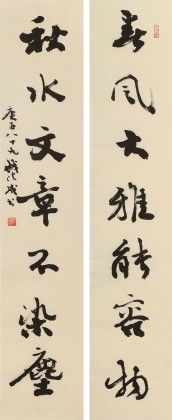 春风大雅能容物
秋水文章不染尘
庚子八十九